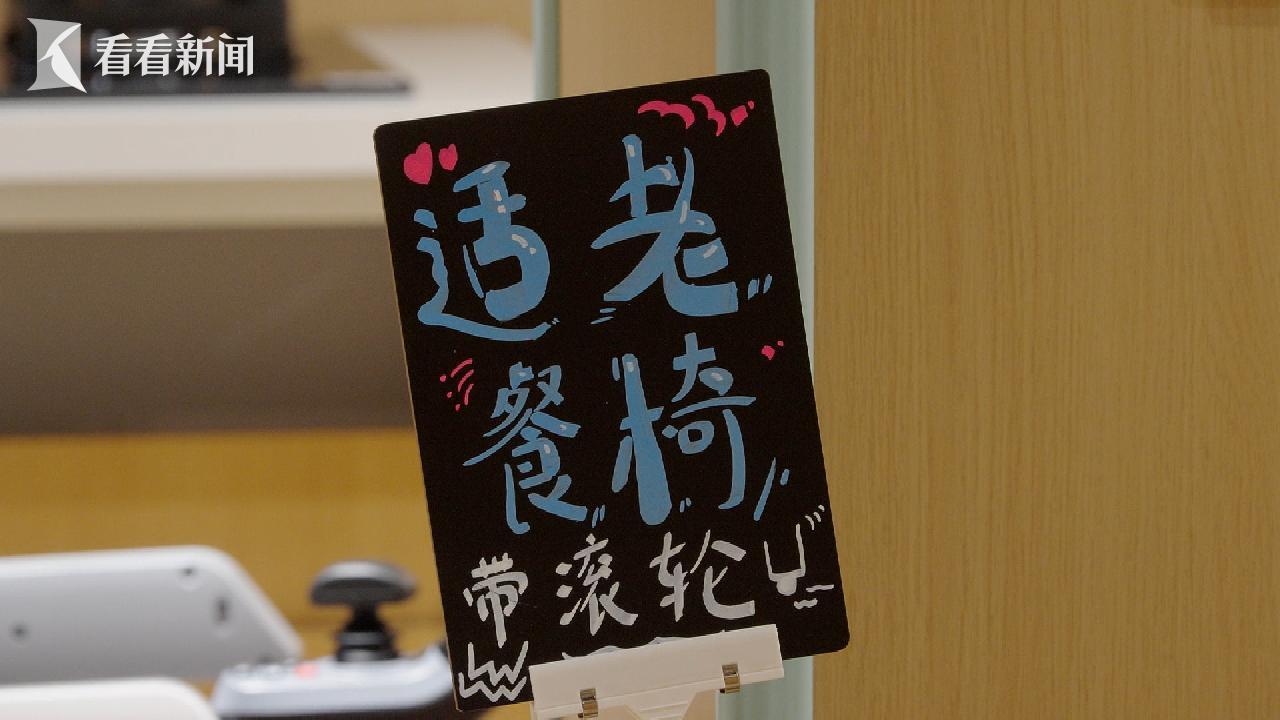 看看新闻
适老
餐椅
带滚轮